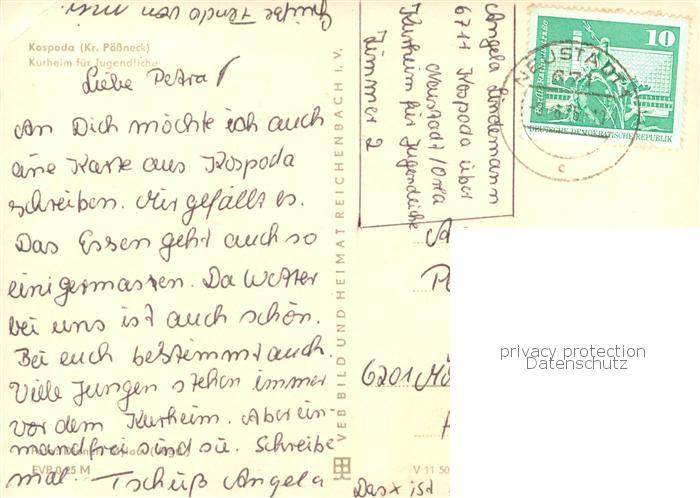 Kospoda (Kr. Pößneck)
Kurheim für Jugendliche
Liebe Petra!
An Dich möchte ich auch
eine Karte aus Kospoda
schreiben. Mir gefällt es.
Das Essen geht auch so
einigermassen. Da Wetter
bei uns ist auch schön.
Bei euch bestimmt auch.
Viele Jungen stehen immer
vor dem Kurheim. Aber ein-
mandfrei sind sie. Schreibe
mal. Tschüß Angela
EVP 0,25 M
VEB BILD UND HEIMAT REICHENBACH I. V.
V 11 50
Angela Lindemann
6711 Kospoda über
Neustadt/Orla
Kurheim für Jugendliche
Zimmer 2
NEUSTADT
671
c
10
DEUTSCHE DEMOKRATISCHE REPUBLIK
6201
Das x ist
privacy protection
Datenschutz